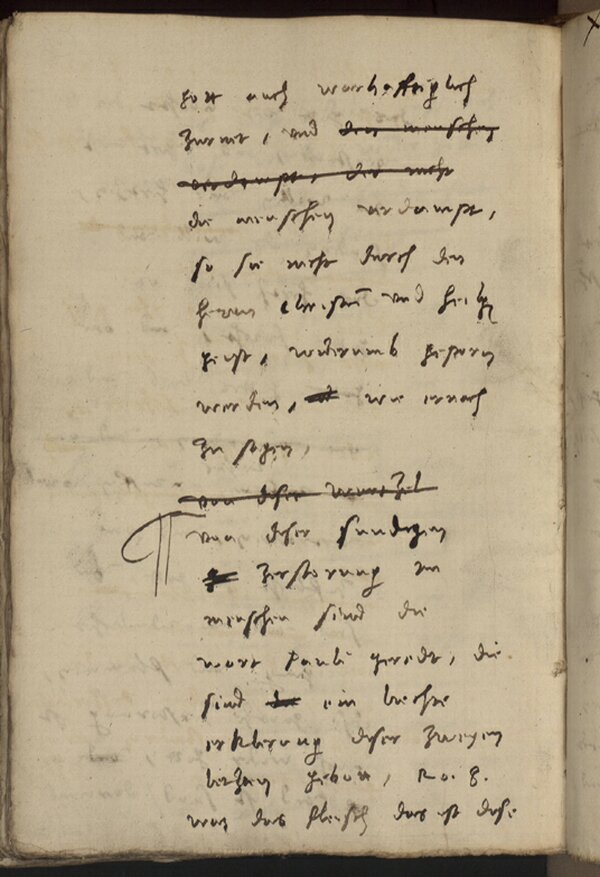 gott auch warhafftiglich
zurnet, und den menschen
verdampt, der nicht
die menschen verdampt,
so sie nicht durch den
herrn Christu und heilig
geist, widerumb geporn
werden, wie ernach
zu sagen,
von diser wurtzel
von diser sundigen
zerstorung im
menschen sind die
wort Pauli geredt, die
sind ein liechte
erklerung diser zweyen
letzten gebott, Ro. 8.
was das fleisch das ist dise